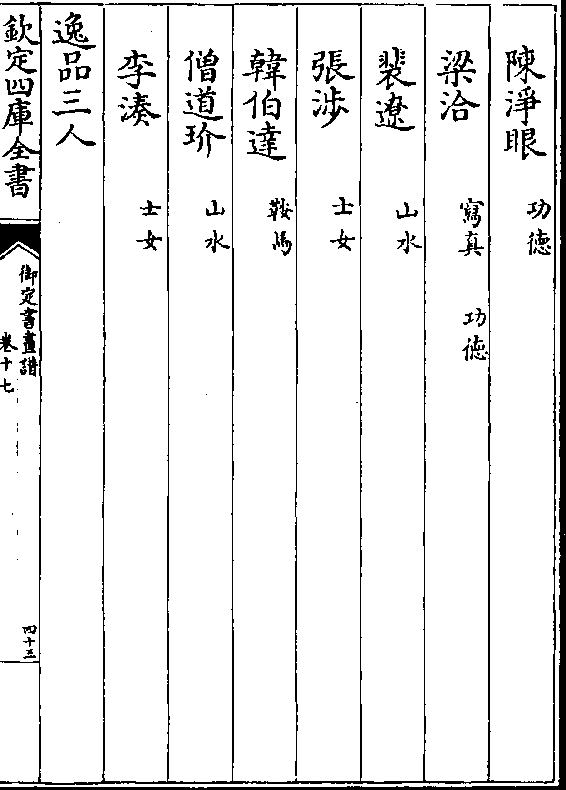 陳淨眼　功德
梁洽　寫真　功德
裴遼　山水
張涉　士女
韓伯達　鞍馬
僧道玠　山水
李湊　士女
逸品三人
欽定四庫全書
御定書畫譜
卷十七
四十三